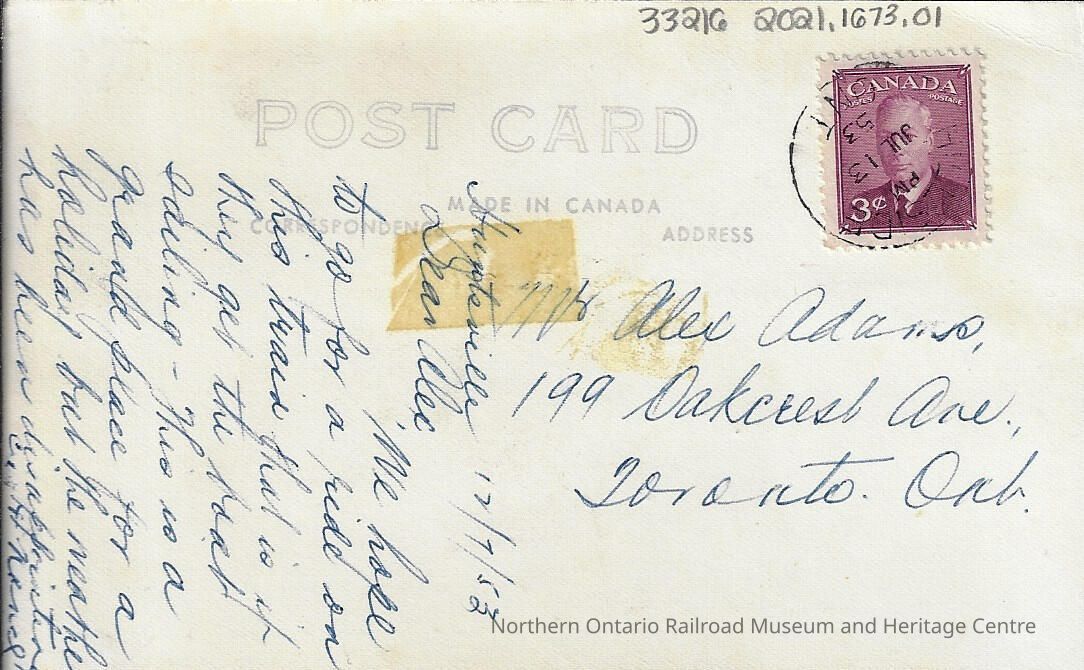 33216 2021.1673.01
CANADA
POSTES POSTAGE
3¢
PM
JUL 13
53
ONT
POST CARD
MADE IN CANADA
CORRESPONDENCE
ADDRESS
Mr Alex Adams,
199 Oakcrest Ave.,
Toronto. Ont.
Huntsville 12/7/53
Dear Alec
We hope
to go for a ride on
this train that is if
they get the boat
sailing - This is a
grand place for a
holiday but the weathe
has been disappointin
Northern Ontario Railroad Museum and Heritage Centre